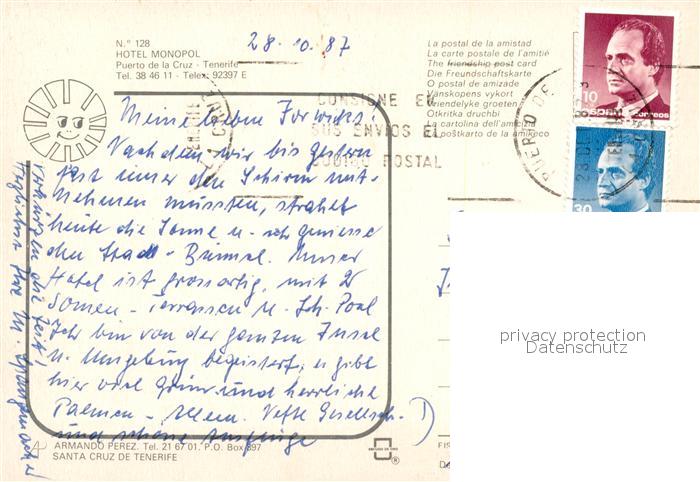 N.° 128
HOTEL MONOPOL
Puerto de la Cruz - Tenerife
Tel. 38 46 11 - Telex: 92397 E
28.10.87
La postal de la amistad
La carte postale de l'amitié
The friendship post card
Die Freundschaftskarte
O postal de amizade
Vänskapens vykort
Vriendelyke groeten
Otkritka druchbi
La cartolina dell'amicizia
La poŝtkarto de la amikeco
CONSIGNE EN
SUS ENVIOS EL
CODIGO POSTAL
PUERTO DE
10
España
correos
30
Meine lieben
Nachdem wir bis gestern
fast immer den Schirm mit-
nehmen mussten, strahlt
heute die Sonne u. ich geniesse
den Stadt-Bummel. Unser
Hotel ist grossartig, mit 2
Sonnen-Terrassen u. Sch. Pool
Ich bin von der ganzen Insel
u. Umgebung begeistert, es gibt
hier viel Grün und herrliche
Palmen-Alleen. Nette Gesellsch.
und schöne Ausflüge
die Zeit!
Herzlichst Ihre M.
ARMANDO PEREZ. Tel. 21 67 01. P.O. Box 897
SANTA CRUZ DE TENERIFE
®
FIS
privacy protection
Datenschutz